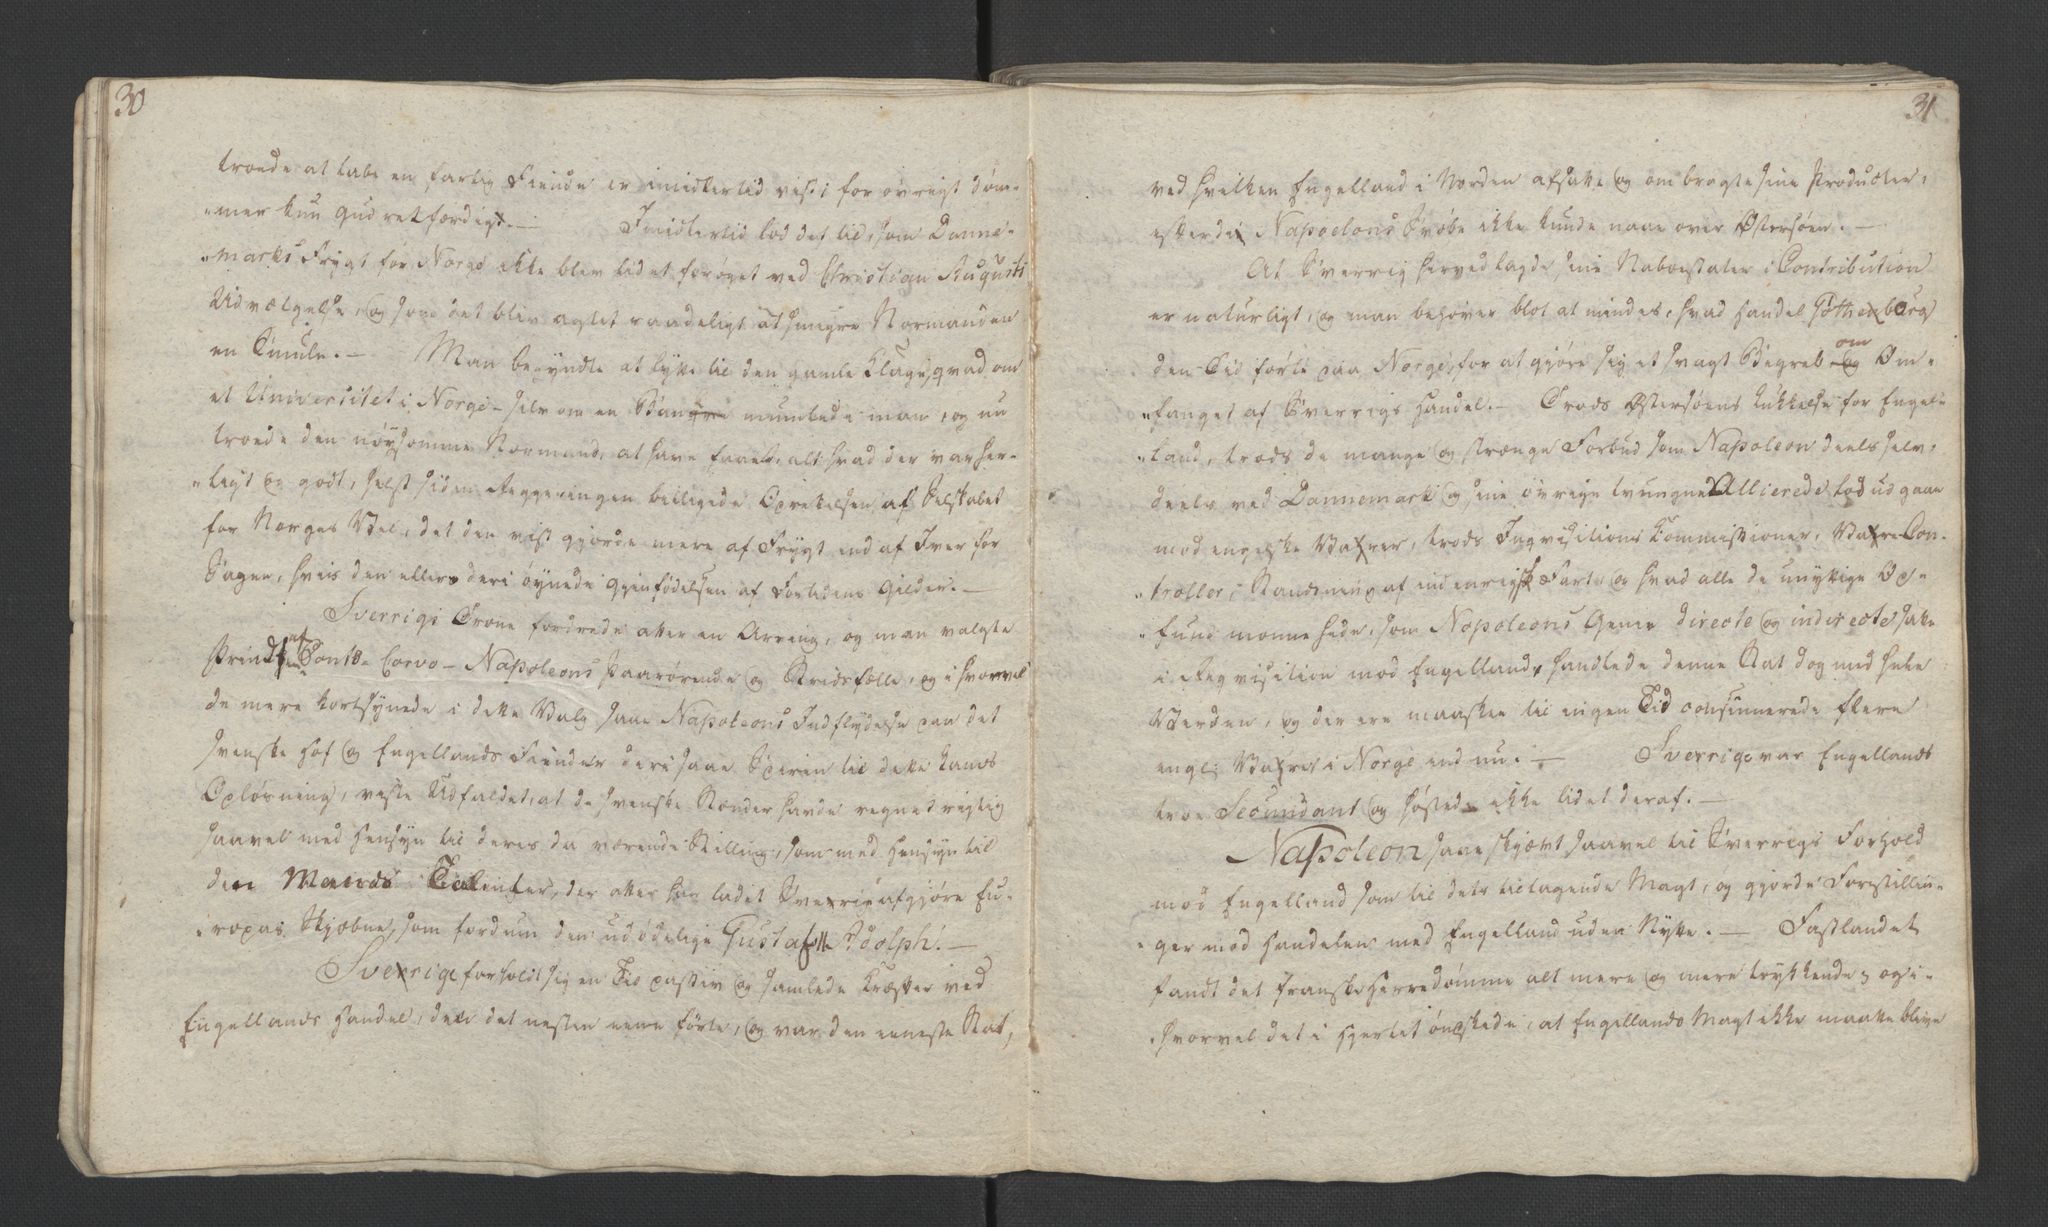 30
troede at tabe en farlig Fiende er imidlertid vist; for øvrigt döm-
"mer kun Gud retfærdigt. — Imidlertid lod det til, som Danne-
"marks Frygt for Norge ikke blev lidet forøget ved Christian Augusts
Udvælgelse, og som det blev agtet raadeligt at smigre Normanden
en Smule. — Man begyndte at lytte til den gamle Klage, qvad om
et Universitet i Norge – selv om en Banqve mumlede man, og nu
troede den nöysomme Normand, at have faaet, alt hvad der var her-
"ligt og godt, helst siden Regjeringen billigede Oprettelsen af Selskabet
for Norges Vel, det den vist gjorde mere af Frygt end af Iver for
Sagen, hvis den ellers deri öynede Gjenfödelsen af Fortidens Gilder. —
Sverrigs Trone fordrede atter en Arving, og man valgte
Prindsen af Ponte-Corvo – Napoleons Paarörende og Stridsfælle, og i hvorvel
de mere kortsynede i dette Valg saae Napoleons Indflydelse paa det
svenske Hof og Engellands Fiender deri saae Spiren til dette Lands
Oplösning, viste Udfaldet, at de svenske Stænder havde regnet rigtig
saavel med Hensyn til deres da værende Stilling, som med Hensyn til
den Mands Talenter, der atter har ladet Sverrig afgjöre Eu-
"ropas Skjæbne, som fordum den udödelige Gustaf Adolph! —
Sverrige forholdt sig en Tid passiv og samlede Kræfter ved
Engellands Handel, den det nesten ene förte, og var den eneste Stat,
31
ved hvilken Engelland i Norden afsatte og ombragte sine Producter,
efterdi Napoelons Svöbe ikke kunde naae over Østersöen. —
At Sverrig herved lagde sine Naboestater i Contribution
er naturligt, og man behöver blot at mindes, hvad Handel Götheborg
den Tid förte paa Norge, for at gjöre sig et svagt Begreb om Om-
"fanget af Sverrigs Handel. — Trods Østersöens Lukkelse for Engel-
"land, trods de mange og strænge Forbud som Napoleon deels selv,
deels ved Dannemark og sine övrige tvungne Allierede lod udgaae
mod engelske Varer, trods Inqvisitions Kommissioner, Vare Con-
"troller, Standsning af indenrigsk Fart, og hvad alle de unyttige Op-
"fund monne hede, som Napoleons Genie directe og indirecte satte
i Reqvisition mod Engelland, handlede denne Stat dog med hele
Verden, og der ere maaskee til ingen Tid consumerede flere
engl: Varer i Norge end nu. — Sverrige var Engellands
troe Secundant og höstede ikke lidet deraf. —
Napoleon saae skjævt saavel til Sverrigs Forhold
mod Engelland som til dets tiltagende Magt, og gjorde Forestillin-
"ger mod Handelen med Engelland uden Nytte. — Fastlandet
fandt det franske Herredömme alt mere og mere trykkende, og i-
"hvorvel det i Hjertet önskede, at Engellands Magt ikke maatte blive